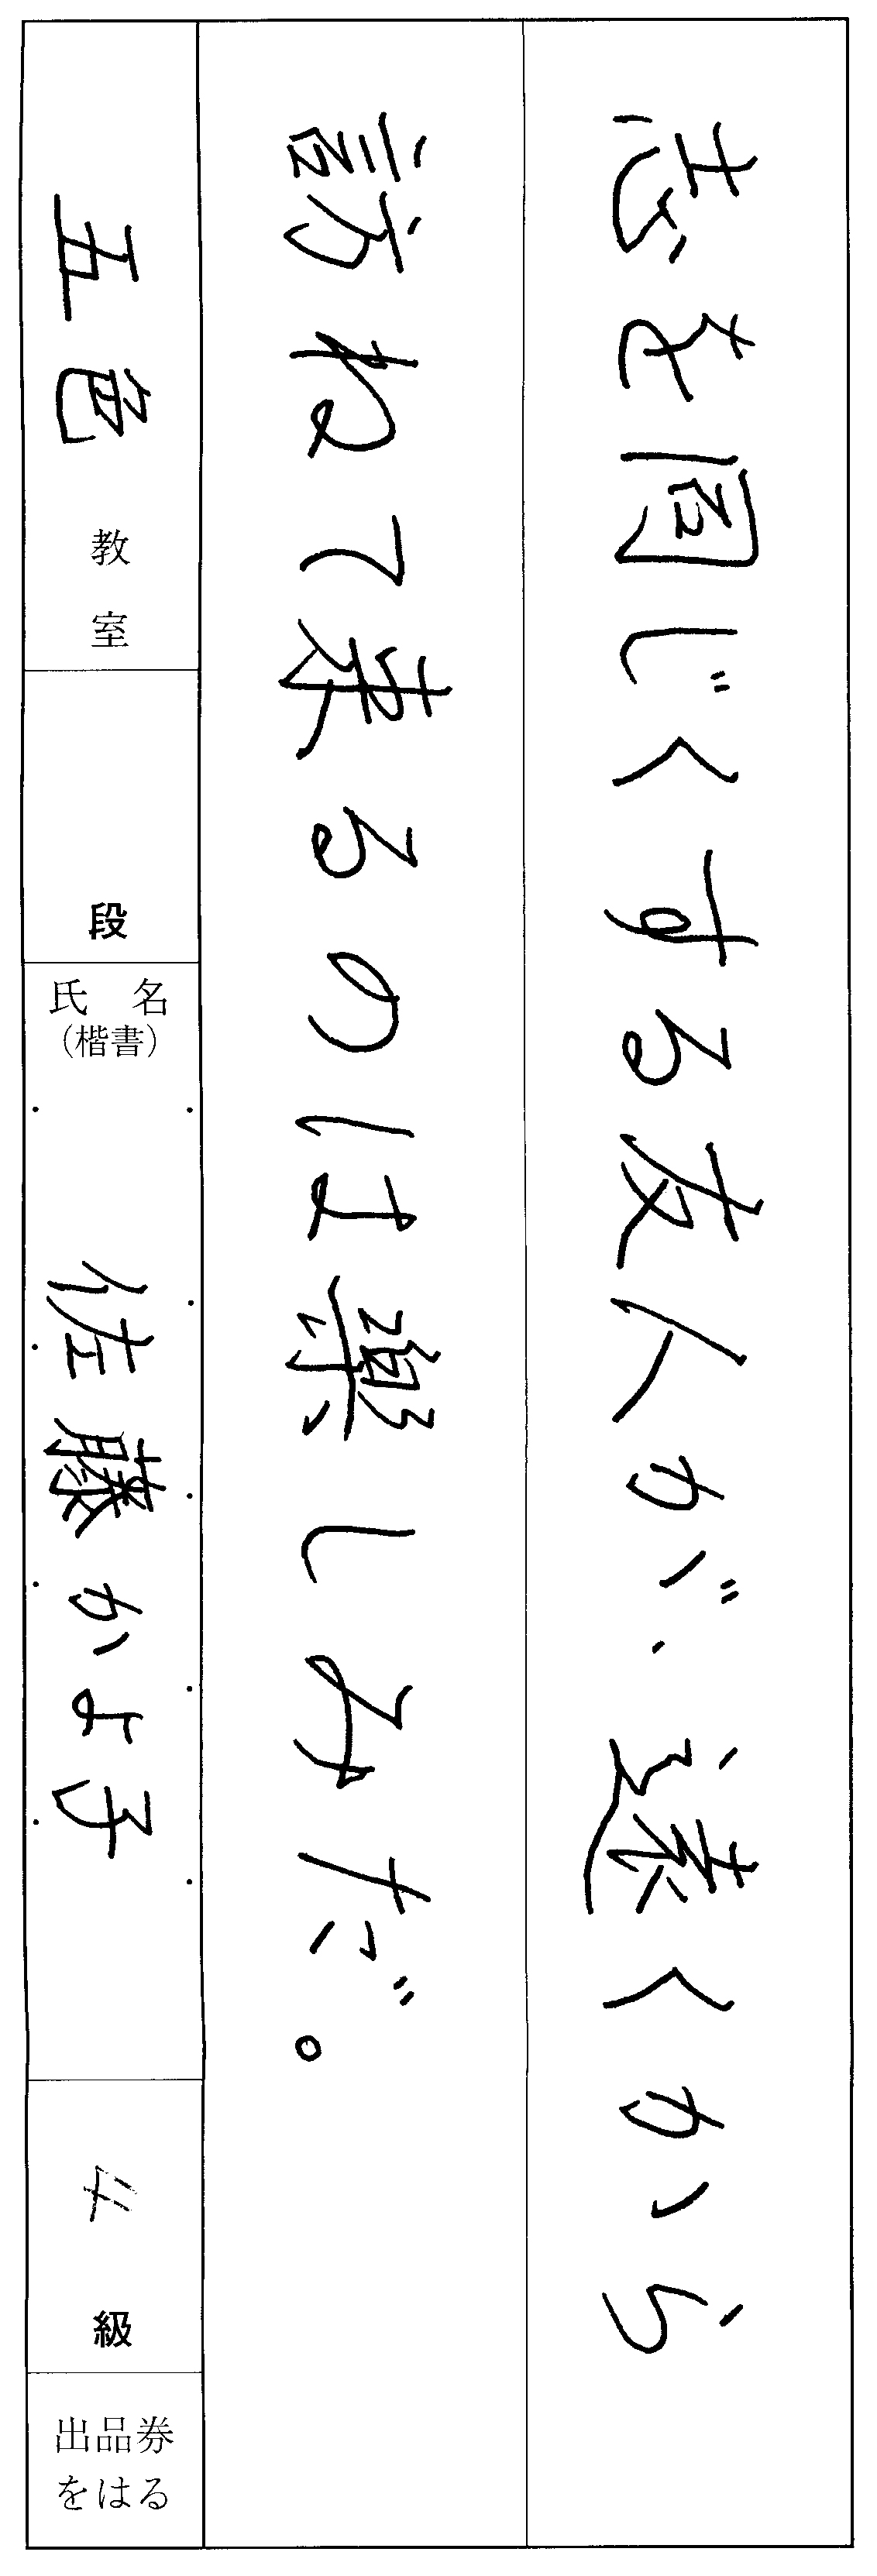 志を同じくする友人が、遠くから
訪ねて来るのは楽しみだ。
五色教室
段
氏名
(楷書)
佐藤かよ子
4級
出品券
をはる